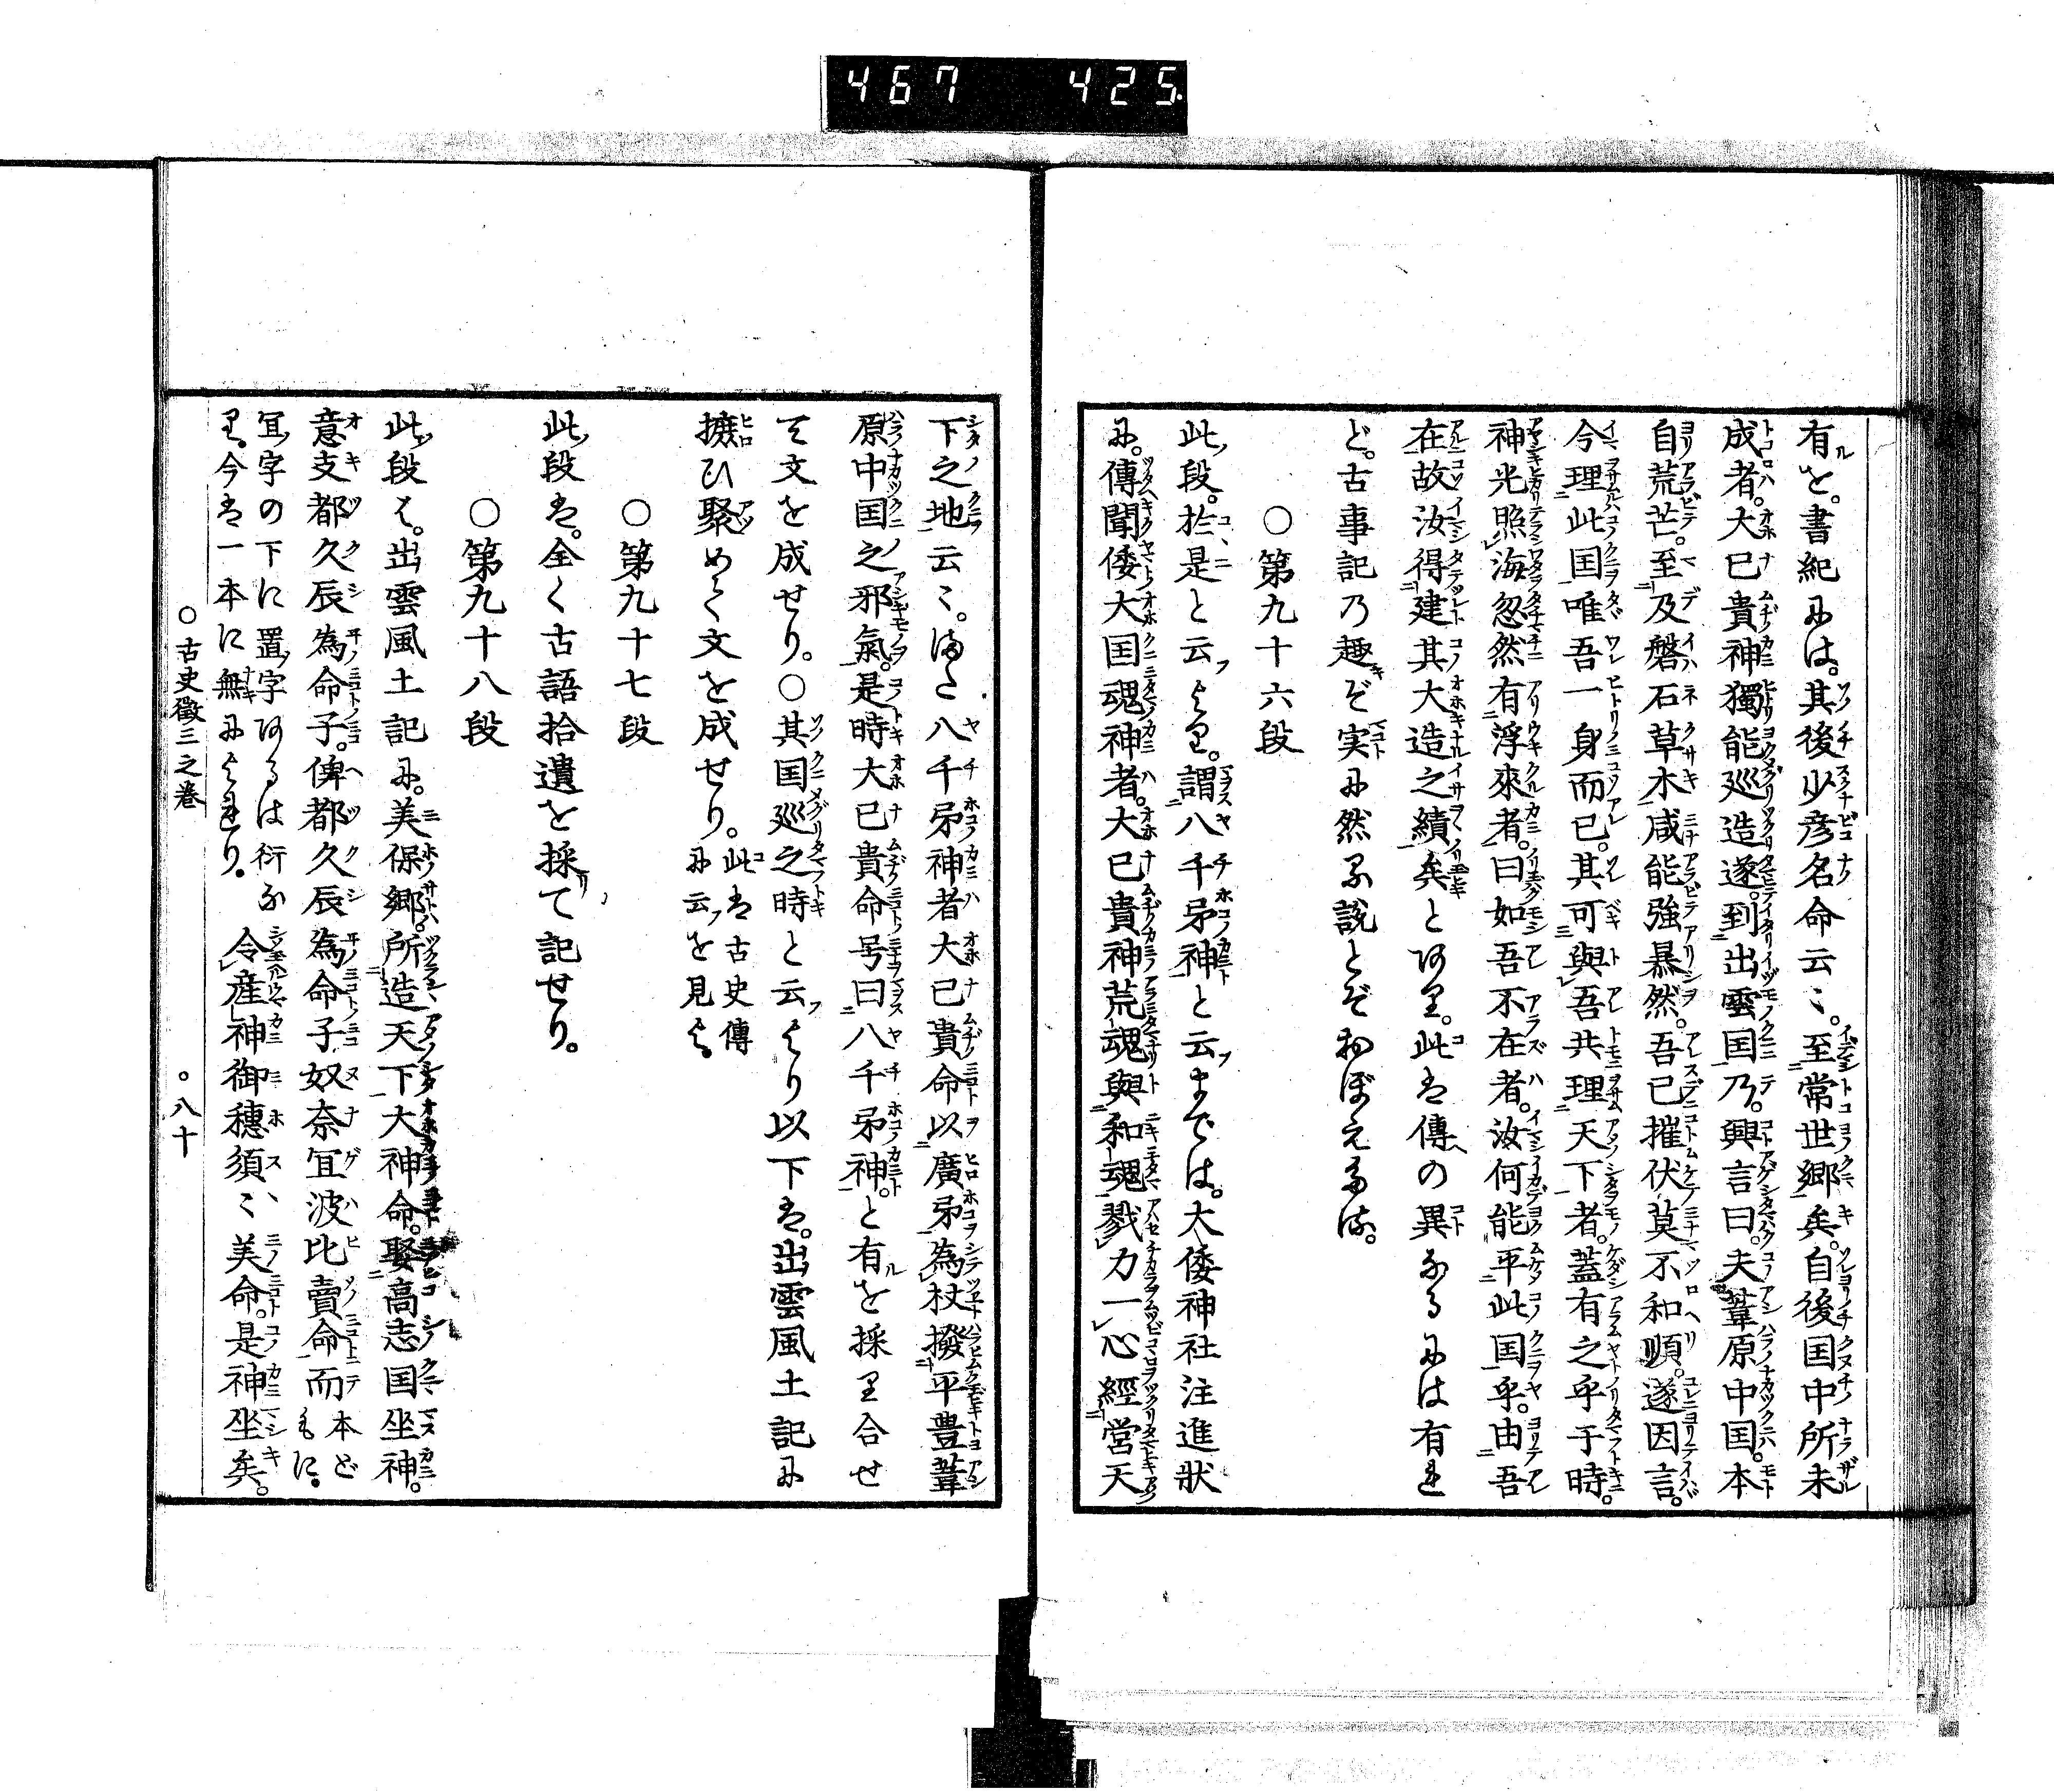 467 425
有を。書紀には。其後少彦名命云〻。至常世郷矣。自後国中所未
成者。大己貴神獨能巡造遂。到出雲国乃。興言曰。夫葦原中国。本
自荒芒。至及磐石草木咸能強暴然。吾已摧伏莫不和順。遂因言。
今理此国唯吾一身而已。其可與吾共理天下者。蓋有之乎于時。
神光照海忽然有浮來者。曰如吾不在者。汝何能平此国乎。由吾
在故汝得建其大造之績矣とあり。此は傳の異なるには有れ
ど。古事記乃趣ぞ実に然る説とぞおぼえたる。
○第九十六段
此段。於是と云より。謂八千矛神と云までは。大倭神社注進狀
に。傳聞倭大国魂神者。大己貴神荒魂與和魂戮力一心經営天
下之地云〻。また八千矛神者大己貴命以廣矛為杖撥平豊葦
原中国之邪氣。是時大己貴命号曰八千矛神。と有を採り合せ
て文を成せり。○其国巡之時と云より以下は。出雲風土記に
摭ひ聚めて文を成せり。此は古史傳に云を見よ。
○第九十七段
此段は。全く古語拾遺を採て記せり。
○第九十八段
此段は。出雲風土記に。美保郷。所造天下大神命。娶高志国坐神。
意支都久辰為命子。俾都久辰為命子奴奈宜波比賣命而本どもに。
宜字の下に置字あるは衍なり。今は一本に無によれり。令産神御穗須〻美命。是神坐矣。
○古史徵三之巻
○八十